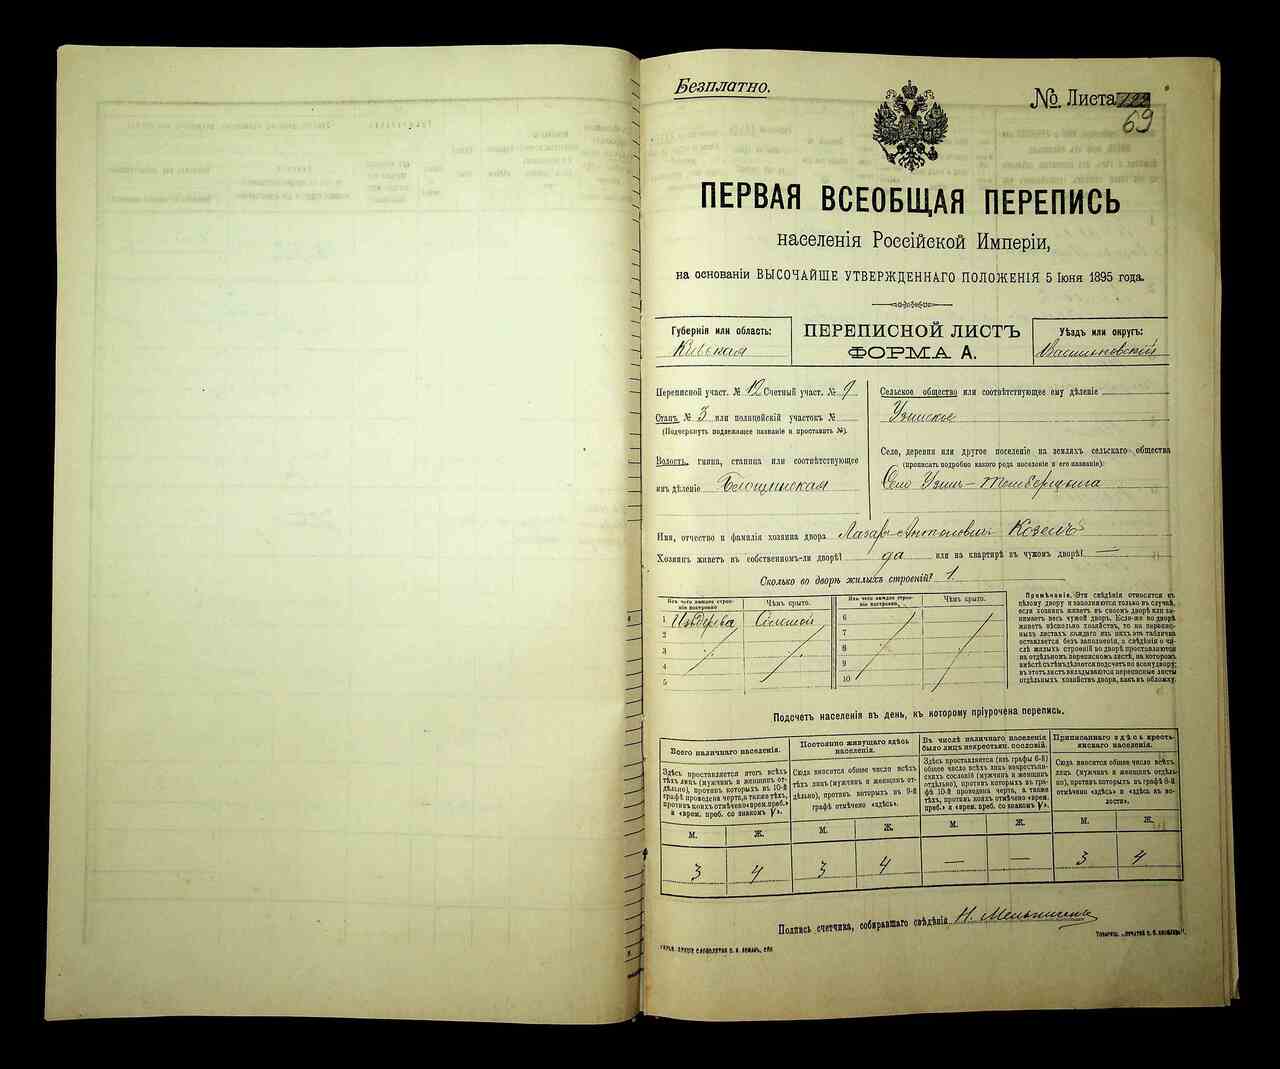 Безплатно.
№ Листа 69
ПЕРВАЯ ВСЕОБЩАЯ ПЕРЕПИСЬ
населенія Россійской Имперіи,
на основаніи ВЫСОЧАЙШЕ УТВЕРЖДЕННАГО ПОЛОЖЕНІЯ 5 Іюня 1895 года.
Губернія или область:
Кіевская
ПЕРЕПИСНОЙ ЛИСТЪ
ФОРМА А.
Уѣздъ или округъ:
Васильковскій
Переписной участ. № 12 Счетный участ. № 9
Станъ № 3 или полицейскій участокъ №
(Подчеркнуть подлежащее названіе и проставить №).
Волость, гмина, станица или соотвѣтствующее
имъ дѣленіе
Сельское общество или соотвѣтствующее ему дѣленіе
Узинское
Село, деревня или другое поселеніе на земляхъ сельскаго общества
(прописать подробно какого рода поселеніе и его названіе):
Село Узин-
Имя, отчество и фамилія хозяина двора Лазарь Антонович Козелъ
Хозяинъ живетъ въ собственномъ-ли дворѣ? да или на квартирѣ въ чужомъ дворѣ? —
Сколько во дворѣ жилыхъ строеній? 1.
Изъ чего каждое строеніе построено
Чѣмъ крыто.
Изъ чего каждое строеніе построено.
Чѣмъ крыто.
1 Изъ дерева Соломой
2
3
4
5
6
7
8
9
10
Примѣчаніе. Эти свѣдѣнія относятся къ
цѣлому двору и заполняются только въ случаѣ,
если хозяинъ живетъ въ своемъ дворѣ или за-
нимаетъ весь чужой дворъ. Если-же во дворѣ
живетъ нѣсколько хозяйствъ, то на перепис-
ныхъ листахъ каждаго изъ нихъ эта табличка
оставляется безъ заполненія, а свѣдѣнія о чи-
слѣ жилыхъ строеній во дворѣ проставляются
на отдѣльномъ переписномъ листѣ, на которомъ
вмѣстѣ съ тѣмъ дѣлается подсчетъ по всему двору;
въ этотъ листъ вкладываются переписные листы
отдѣльныхъ хозяйствъ двора, какъ въ обложку.
Подсчетъ населенія въ день, къ которому пріурочена перепись.
Всего наличнаго населенія.
Здѣсь проставляется итогъ всѣхъ
тѣхъ лицъ (мужчинъ и женщинъ от-
дѣльно), противъ которыхъ въ 10-й
графѣ проведена черта, а также тѣхъ,
противъ коихъ отмѣчено «врем. преб.»
и «врем. преб. со знакомъ V».
Постоянно живущаго здѣсь
населенія.
Сюда вносится общее число всѣхъ
тѣхъ лицъ (мужчинъ и женщинъ от-
дѣльно), противъ которыхъ въ 9-й
графѣ отмѣчено «здѣсь».
Въ числѣ наличнаго населенія
было лицъ некрестьян. сословій.
Здѣсь проставляется (изъ графы 6-й)
общее число всѣхъ лицъ некрестьян-
скихъ сословій (мужчинъ и женщинъ
отдѣльно), противъ которыхъ въ гра-
фѣ 10-й проведена черта, а также
тѣхъ, противъ коихъ отмѣчено «врем.
преб.» и «врем. преб. со знакомъ V».
Приписаннаго здѣсь кресть-
янскаго населенія.
Сюда вносится общее число всѣхъ
лицъ (мужчинъ и женщинъ отдѣль-
но), противъ которыхъ въ графѣ 8-й
отмѣчено «здѣсь» и «здѣсь въ во-
лости».
М. Ж. М. Ж. М. Ж. М. Ж.
3 4 3 4 — — 3 4
Подпись счетчика, собиравшаго свѣдѣнія Н.